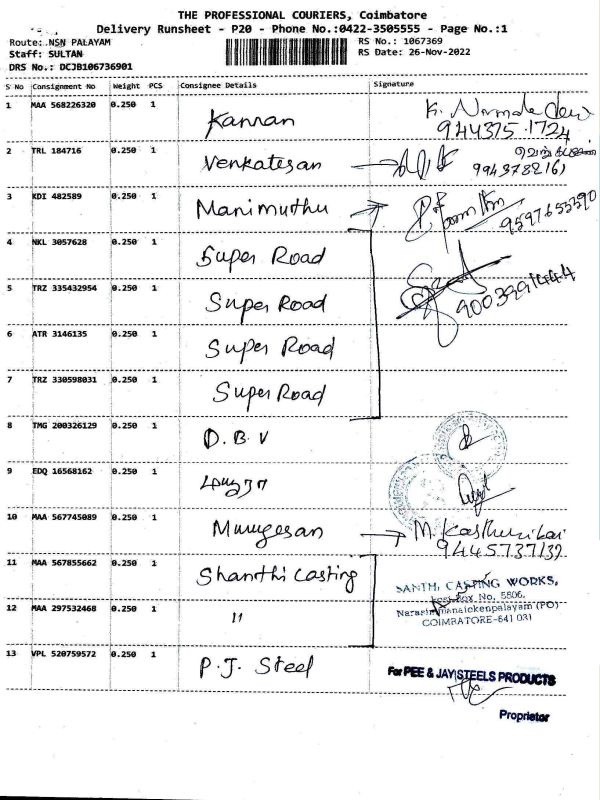 THE PROFESSIONAL COURIERS, Coimbatore
Delivery Runsheet - P20 - Phone No.:0422-3505555 - Page No.:1
Route: NSN PALAYAM
RS No.: 1067369
Staff: SULTAN
RS Date: 26-Nov-2022
DRS No.: DCJB106736901
S No Consignment No Weight PCS Consignee Details Signature
1 MAA 568226320 0.250 1 Kannan K. Nirmala devi
944375 1724
2 TRL 184716 0.250 1 Venkatesan
9943782161
3 KDI 482589 0.250 1 Manimuthu
9597653390
4 NKL 3057628 0.250 1 Super Road
5 TRZ 335432954 0.250 1 Super Road
6 ATR 3146135 0.250 1 Super Road
7 TRZ 330598031 0.250 1 Super Road
8 TMG 200326129 0.250 1 D.B.V
9 EDQ 16568162 0.250 1
10 MAA 567745089 0.250 1 Murugesan M. Kasthuribai
9445737132
11 MAA 567855662 0.250 1 Shanthi Casting
SANTHI CASTING WORKS,
Post Box No. 5806,
12 MAA 297532468 0.250 1 "
Narasimhanaickenpalayam (PO)
COIMBATORE-641 031
13 VPL 520759572 0.250 1 P.J. Steel
For PEE & JAY STEELS PRODUCTS
Proprietor